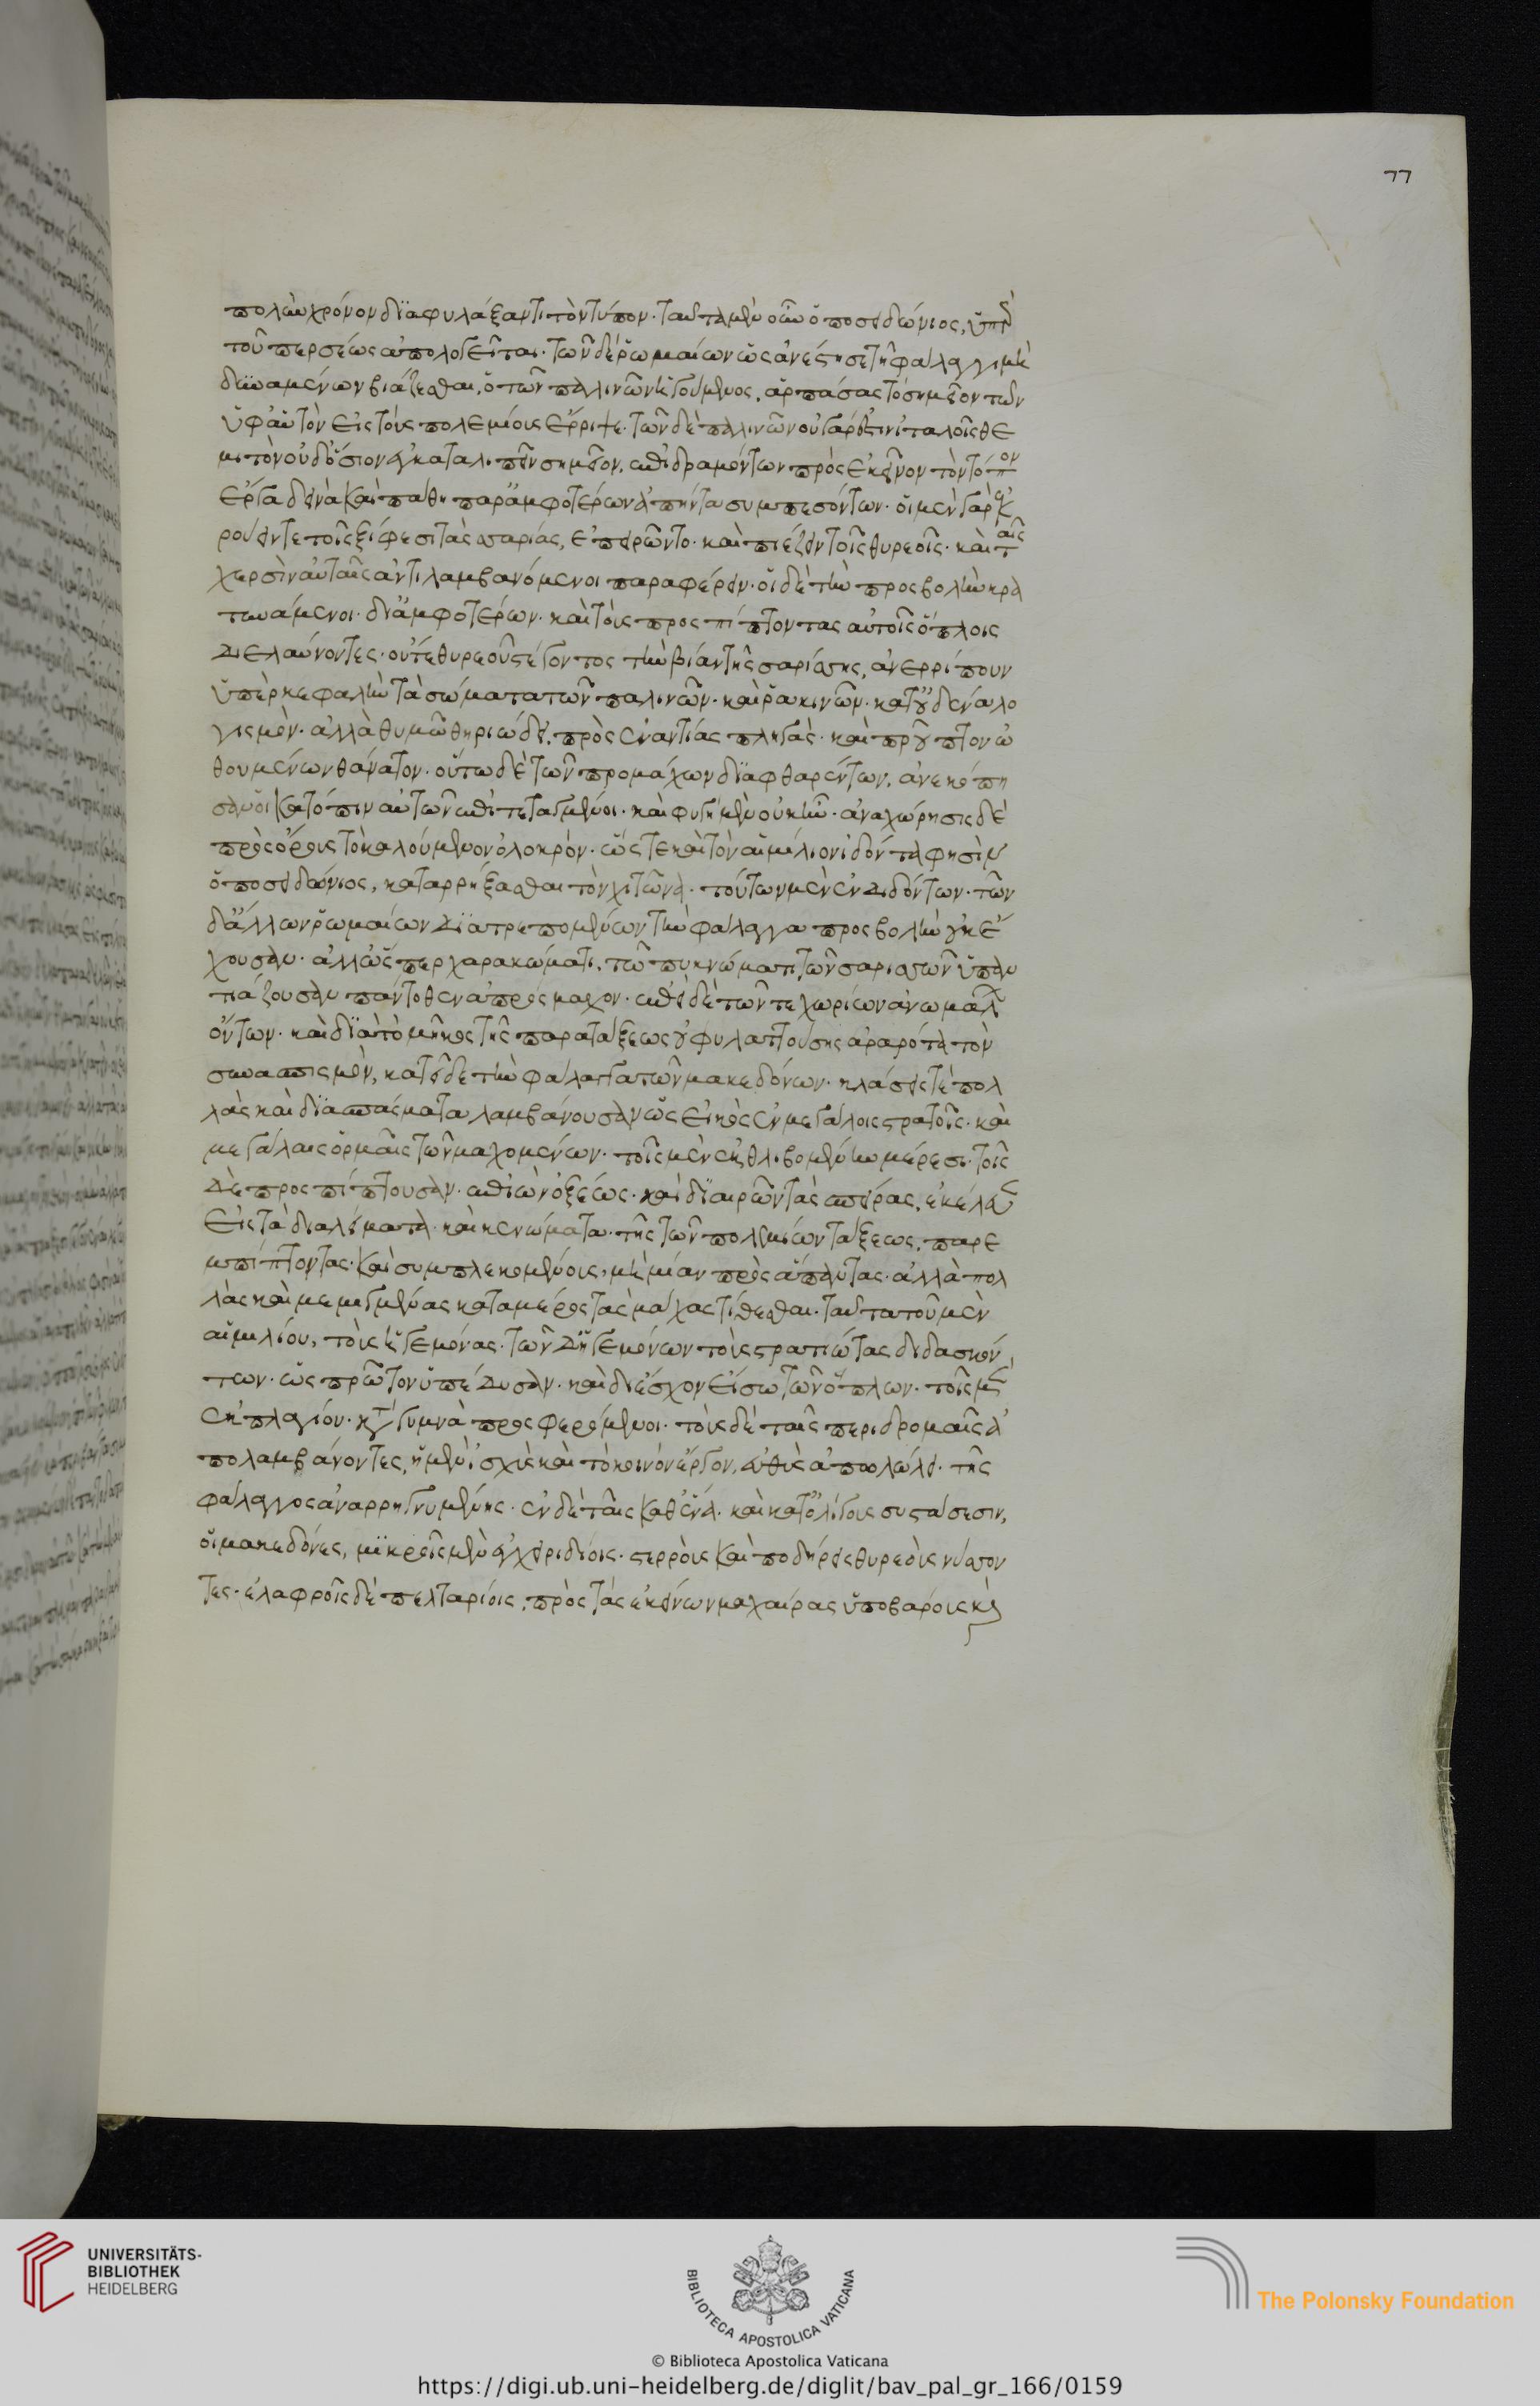 77
πολὺν χρόνον διαφυλάξαντι τὸν τύπον. ταῦτα μὲν οὖν ὁ ποσειδώνιος, ὑπὲρ
τοῦ περσέως ἀπολογεῖται. τῶν δὲ ῥωμαίων ὡς ἀνέστησε τῇ φάλαγγι μὴ
δυναμένων βιάζεσθαι, ὁ τῶν παλινῶν ἡγούμενος, ἁρπάσας τὸ σημεῖον τῶν
ὑφ' αὑτὸν εἰς τοὺς πολεμίους ἔρριψε. τῶν δὲ παλινῶν οὐ γάρ ἐστιν ἰταλοῖς θε
μιτὸν οὐδ' ὅσιον ἐγκαταλιπεῖν σημεῖον, ἐπιδραμόντων πρὸς ἐκεῖνον τὸν τόπον
ἔργα δεινὰ καὶ πάθη παρ' ἀμφοτέρων ἀπήντα συμπεσόντων. οἱ μὲν γὰρ ἐκ
ρούειν τε τοῖς ξίφεσι τὰς σαρίσας, ἐπειρῶντο. καὶ πιέζειν τοῖς θυρεοῖς. καὶ ταῖς
χερσὶν αὐταῖς ἀντιλαμβανόμενοι παραφέρειν. οἱ δὲ τὴν προσβολὴν κρα
τυνάμενοι. δι' ἀμφοτέρων. καὶ τοὺς προσπίπτοντας αὐτοῖς ὅπλοις
διελαύνοντες. οὔτε θυρεοῦ στέγοντος τὴν βίαν τῆς σαρίσης, ἀνερρίπουν
ὑπὲρ κεφαλὴν τὰ σώματα τῶν παλινῶν. καὶ ῥακινῶν. κατ' οὐδένα λο
γισμὸν. ἀλλὰ θυμῷ θηριώδει, πρὸς ἐναντίας πληγὰς. καὶ προὖπτον ὠ
θουμένων θάνατον. οὕτω δὲ τῶν προμάχων διαφθαρέντων. ἀνεκόπη
σαν οἱ κατόπιν αὐτῶν ἐπιτεταγμένοι. καὶ φυγὴ μὲν οὐκ ἦν. ἀναχώρησις δὲ
πρὸς ὄρος τὸ καλούμενον ὀλοκρόν. ὥστε καὶ τὸν αἰμίλιον ἰδόντα φησὶν
ὁ ποσειδώνιος, καταρρήξασθαι τὸν χιτῶνα. τούτων μὲν ἐνδιδόντων. τῶν
δ' ἄλλων ῥωμαίων διατρεπομένων τὴν φάλαγγα προσβολὴν οὐκ ἔ
χουσαν. ἀλλ' ὥσπερ χαρακώματι, τῷ πυκνώματι τῶν σαρισῶν ὑπαν
τιάζουσαν πάντοθεν ἀπρόσμαχον. ἐπεὶ δὲ τῶν τε χωρίων ἀνωμάλων
ὄντων. καὶ διὰ τὸ μῆκος τῆς παρατάξεως οὐ φυλαττούσης ἀραρότα τὸν
συνασπισμὸν, κατεῖδε τὴν φάλαγγα τῶν μακεδόνων. κλάσεις τὲ πολ
λὰς καὶ διασπάσματα λαμβάνουσαν ὡς εἰκὸς ἐν μεγάλοις στρατοῖς. καὶ
μεγάλαις ὁρμαῖς τῶν μαχομένων. τοῖς μὲν ἐκθλιβομένην μέρεσι. τοῖς
δὲ προσπίπτουσαν. ἐπιὼν ὀξέως. καὶ διαιρῶν τὰς σπείρας, ἐκέλευεν
εἰς τὰ διαλείματα. καὶ κενώματα. τῆς τῶν πολεμίων τάξεως, παρε
μπίπτοντας. καὶ συμπλεκομένους, μὴ μίαν πρὸς ἅπαντας. ἀλλὰ πολ
λὰς καὶ μεμιγμένας κατὰ μέρος τὰς μάχας τίθεσθαι. ταῦτα τοῦ μὲν
αἰμιλίου, τοὺς ἡγεμόνας. τῶν δ' ἡγεμόνων τοὺς στρατιώτας διδασκόν
των. ὡς πρῶτον ὑπέδυσαν. καὶ διέσχον εἴσω τῶν ὅπλων. τοῖς μὲν
ἐκ πλαγίου. κατὰ γυμνὰ προσφερόμενοι. τοὺς δὲ ταῖς περιδρομαῖς ἀ
πολαμβάνοντες, ἡ μὲν ἰσχὺς καὶ τὸ κοινὸν ἔργον, εὐθὺς ἀπολώλει. τῆς
φάλαγγος ἀναρρηγνυμένης. ἐν δὲ ταῖς καθ' ἕνα. καὶ κατ' ὀλίγους συστάσεσιν,
οἱ μακεδόνες, μικροῖς μὲν ἐγχειριδίοις. στερροὺς καὶ ποδήρεις θυρεοὺς νύσσον
τες. ἐλαφροῖς δὲ πελταρίοις, πρὸς τὰς ἐκείνων μαχαίρας ὑπὸ βάρους καὶ
UNIVERSITÄTS-
BIBLIOTHEK
HEIDELBERG
BIBLIOTECA APOSTOLICA VATICANA
© Biblioteca Apostolica Vaticana
The Polonsky Foundation
https://digi.ub.uni-heidelberg.de/diglit/bav_pal_gr_166/0159